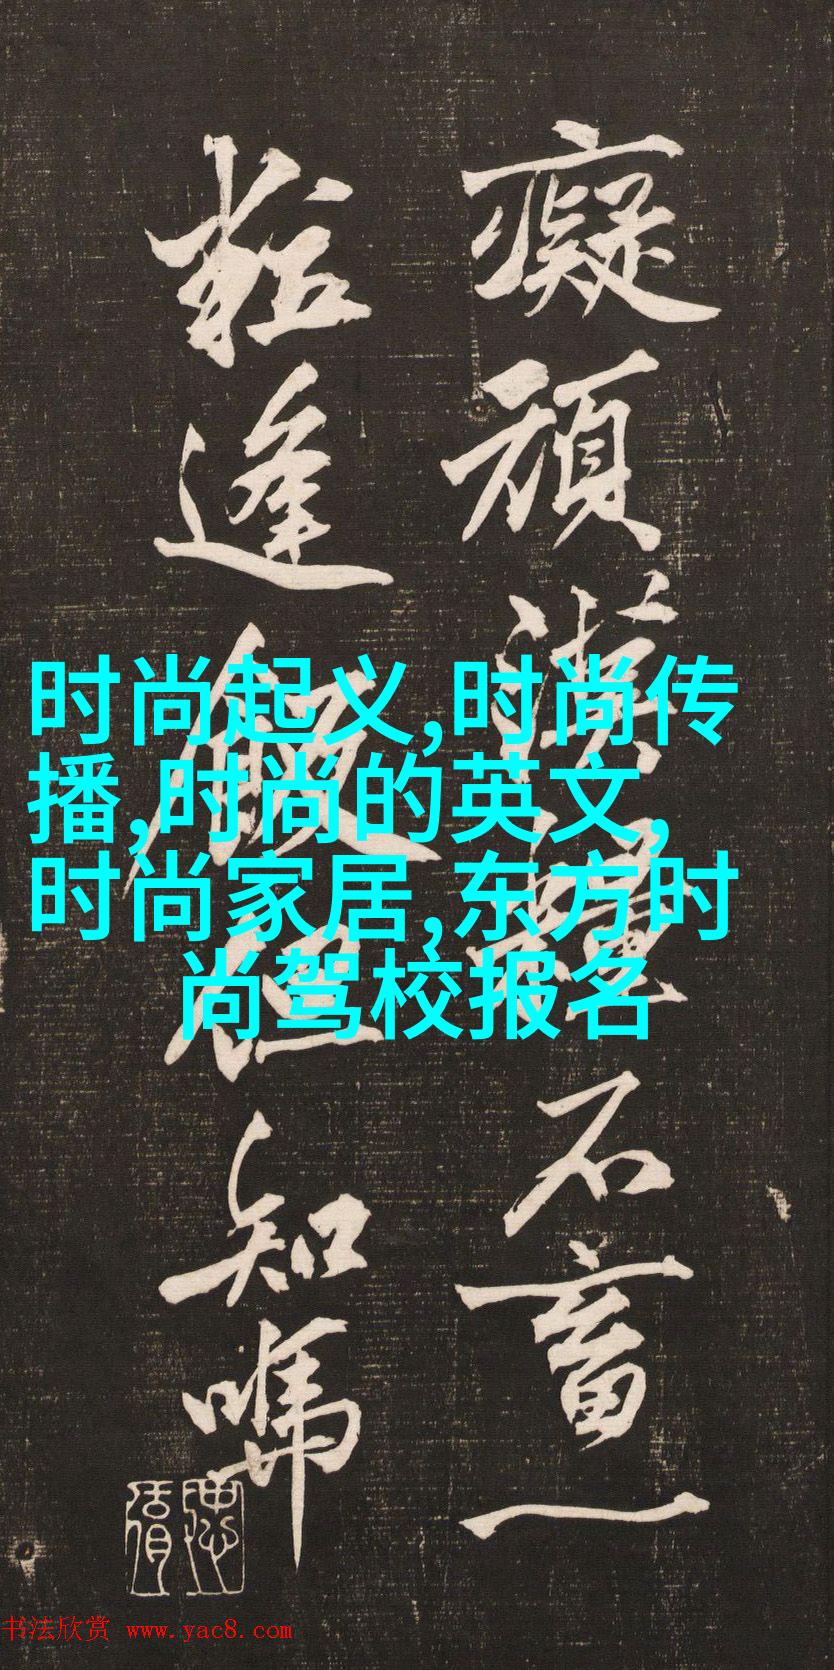 癡頑漢石畜一
逢飯但知
时尚起义,时尚传
播,时尚的英文,
时尚家居,东方时
尚驾校报名
书法欣赏 www.yac8.com